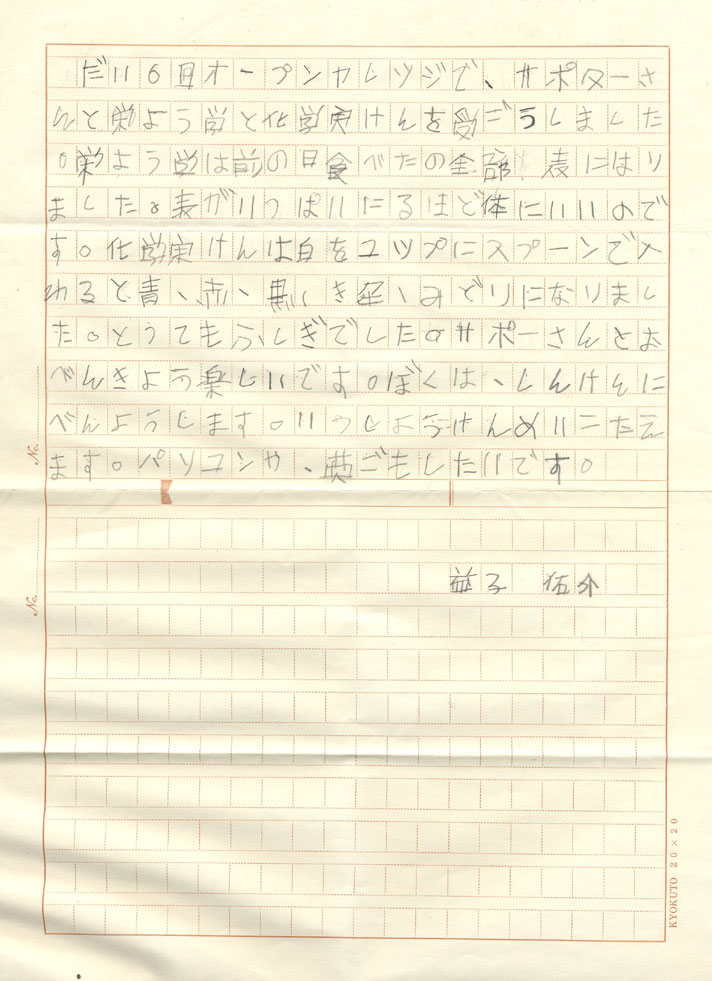 だい6回オープンカレツジで、サポターさ
んと栄よう学と化学実けんを受ごうしました
。栄よう学は前の日食べたの全部 表にはり
ました。表がいっぱいにるほど体にいいので
す。化学実けんは白をコップにスプーンで入
れると青、赤、黒、き、みどりになりまし
た。とってもふしぎでした。サポーさんとお
べんきょう楽しいです。ぼくは、しんけんに
べんようします。いっしょうけんめいこたえ
ます。パソコンや、英ごもしたいです。
益子 祐介
No.
No.
KYOKUTO 20×20